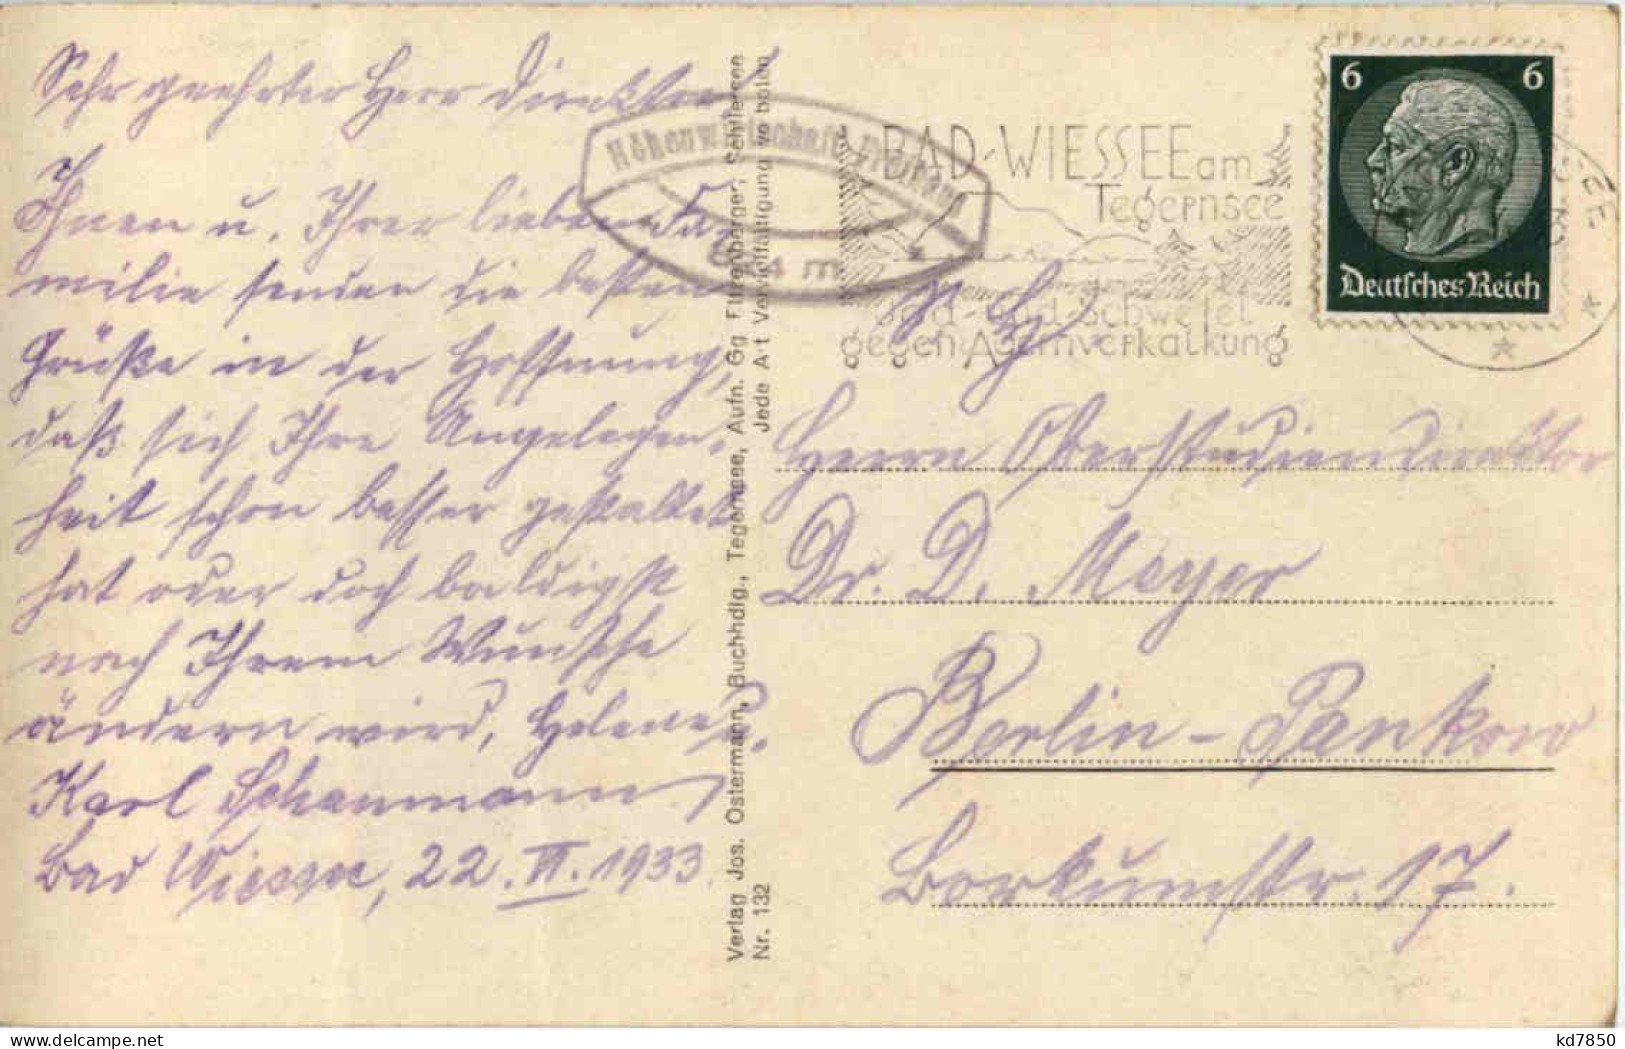 Sehr geehrter Herr Direktor!
Ihnen u. Ihrer lieben Fa-
milie senden die besten
Grüße in der Hoffnung,
daß sich Ihre Angelegen-
heit schon besser gestaltet
hat oder doch baldigst
nach Ihrem Wunsche
ändern wird, Helene u.
Karl Schaumann
Bad Wiessee, 22. VI. 1933.
Verlag Jos. Ostermann, Buchhdlg., Tegernsee, Aufn. Gg
Schliersee
Nr. 132
Jede Art Vervielfältigung verboten
844 m
BAD-WIESSEE am
Tegernsee
Jod- und Schwefel
gegen Adernverkalkung
6 6
Deutsches Reich
Herrn Oberstudiendirektor
Dr. D. Meyer
Berlin-Pankow
Borkumstr. 17.
kd7850